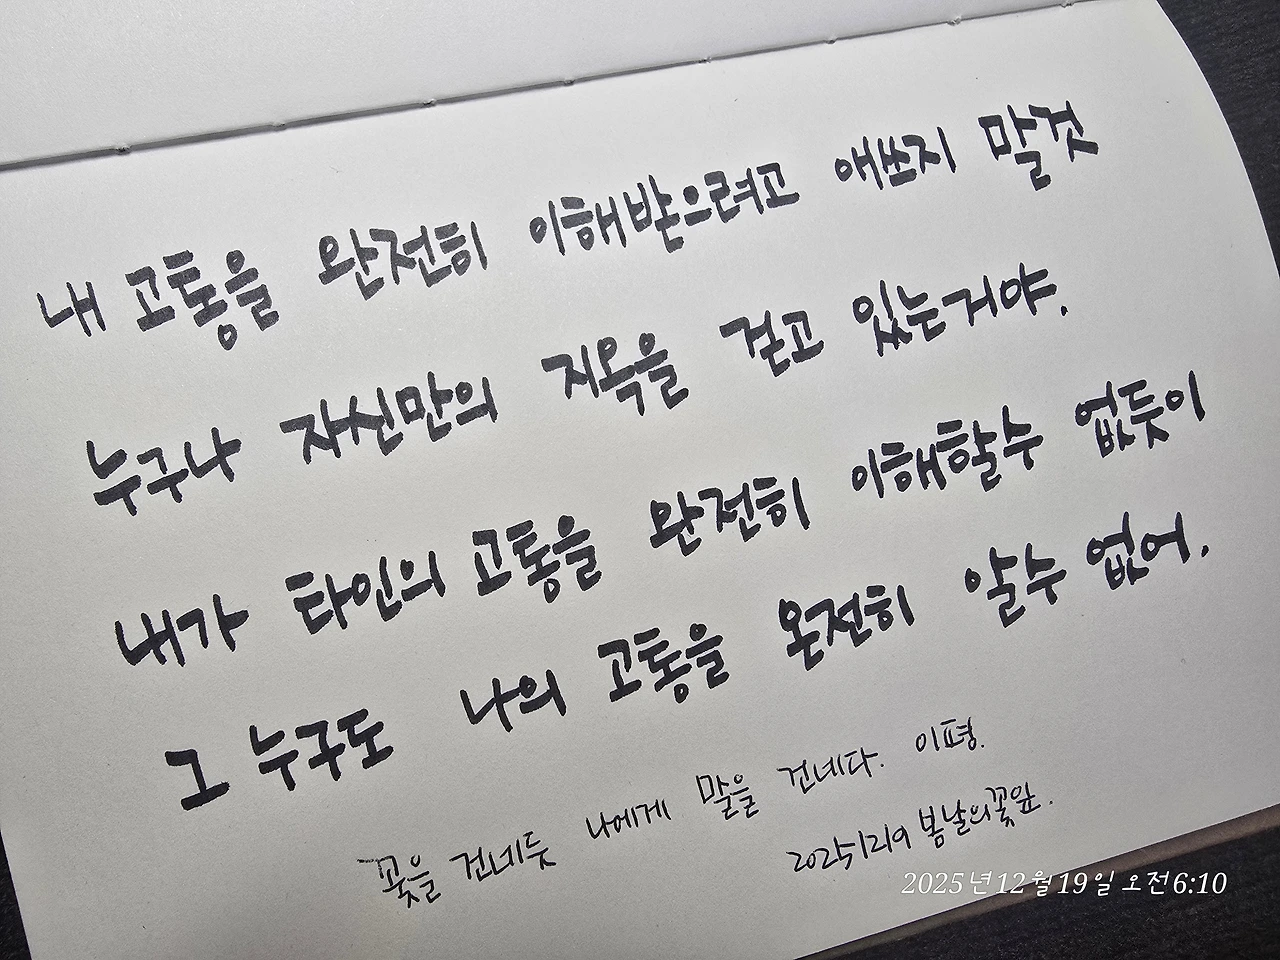 내 고통을 완전히 이해받으려고 애쓰지 말것
누구나 자신만의 지옥을 걷고 있는거야.
내가 타인의 고통을 완전히 이해할수 없듯이
그 누구도 나의 고통을 온전히 알수 없어.
꽃을 건네듯 나에게 말을 건네다. 이평.
20251219 봄날의꽃잎.
2025년12월19일 오전6:10